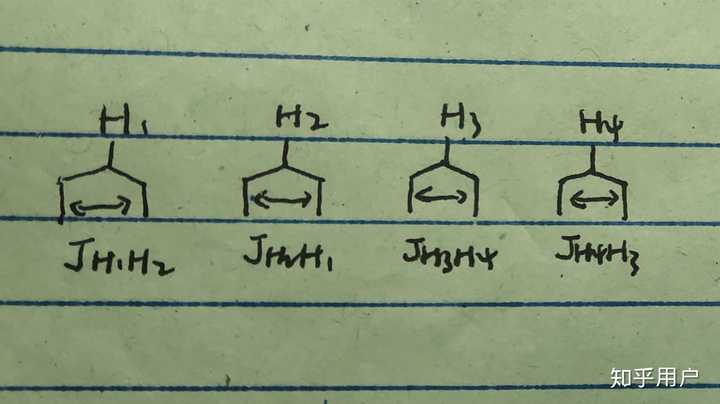 H1 H2 H3 H4
JH1H2 JH2H1 JH3H4 JH4H3
知乎用户